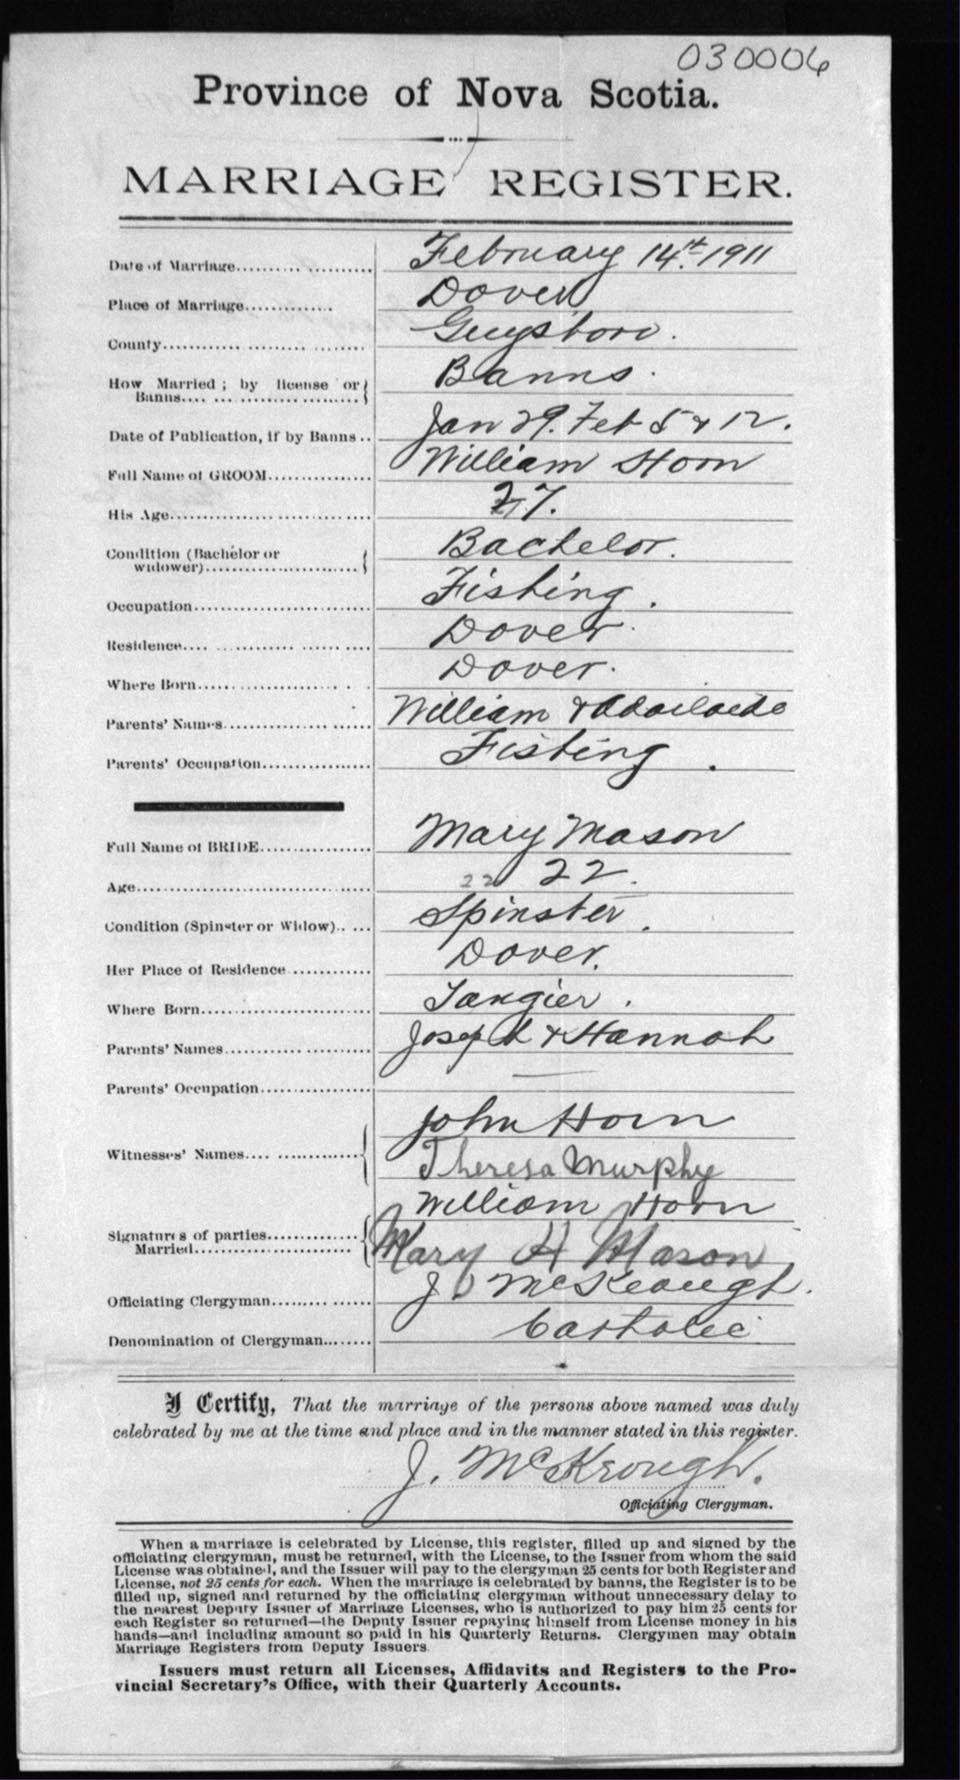 030006
Province of Nova Scotia.
MARRIAGE REGISTER.
Date of Marriage.......... February 14th. 1911
Place of Marriage............. Dover
County............ Guysboro.
How Married; by license or Banns.... Banns.
Date of Publication, if by Banns.. Jan 29. Feb 5 & 12.
Full Name of GROOM................ William Horn
His Age............ 27.
Condition (Bachelor or widower).......... Bachelor.
Occupation.......... Fishing.
Residence.... Dover.
Where Born.......... Dover.
Parents' Names.......... William & Adailaide
Parents' Occupation................ Fishing.
Full Name of BRIDE................ Mary Mason
Age.......... 22 22.
Condition (Spinster or Widow)..... Spinster.
Her Place of Residence............ Dover.
Where Born.......... Tangier.
Parents' Names.......... Joseph & Hannah
Parents' Occupation................ —
John Horn
Witnesses' Names.... Theresa Murphy
William Horn
Signatures of parties Married.......... Mary H Mason
Officiating Clergyman.......... J. McKeough.
Denomination of Clergyman....... Catholic
I Certify, That the marriage of the persons above named was duly
celebrated by me at the time and place and in the manner stated in this register.
J. McKeough.
Officiating Clergyman.
When a marriage is celebrated by License, this register, filled up and signed by the
officiating clergyman, must be returned, with the License, to the Issuer from whom the said
License was obtained, and the Issuer will pay to the clergyman 25 cents for both Register and
License, not 25 cents for each. When the marriage is celebrated by banns, the Register is to be
filled up, signed and returned by the officiating clergyman without unnecessary delay to
the nearest Deputy Issuer of Marriage Licenses, who is authorized to pay him 25 cents for
each Register so returned—the Deputy Issuer repaying himself from License money in his
hands—and including amount so paid in his Quarterly Returns. Clergymen may obtain
Marriage Registers from Deputy Issuers.
Issuers must return all Licenses, Affidavits and Registers to the Pro-
vincial Secretary's Office, with their Quarterly Accounts.